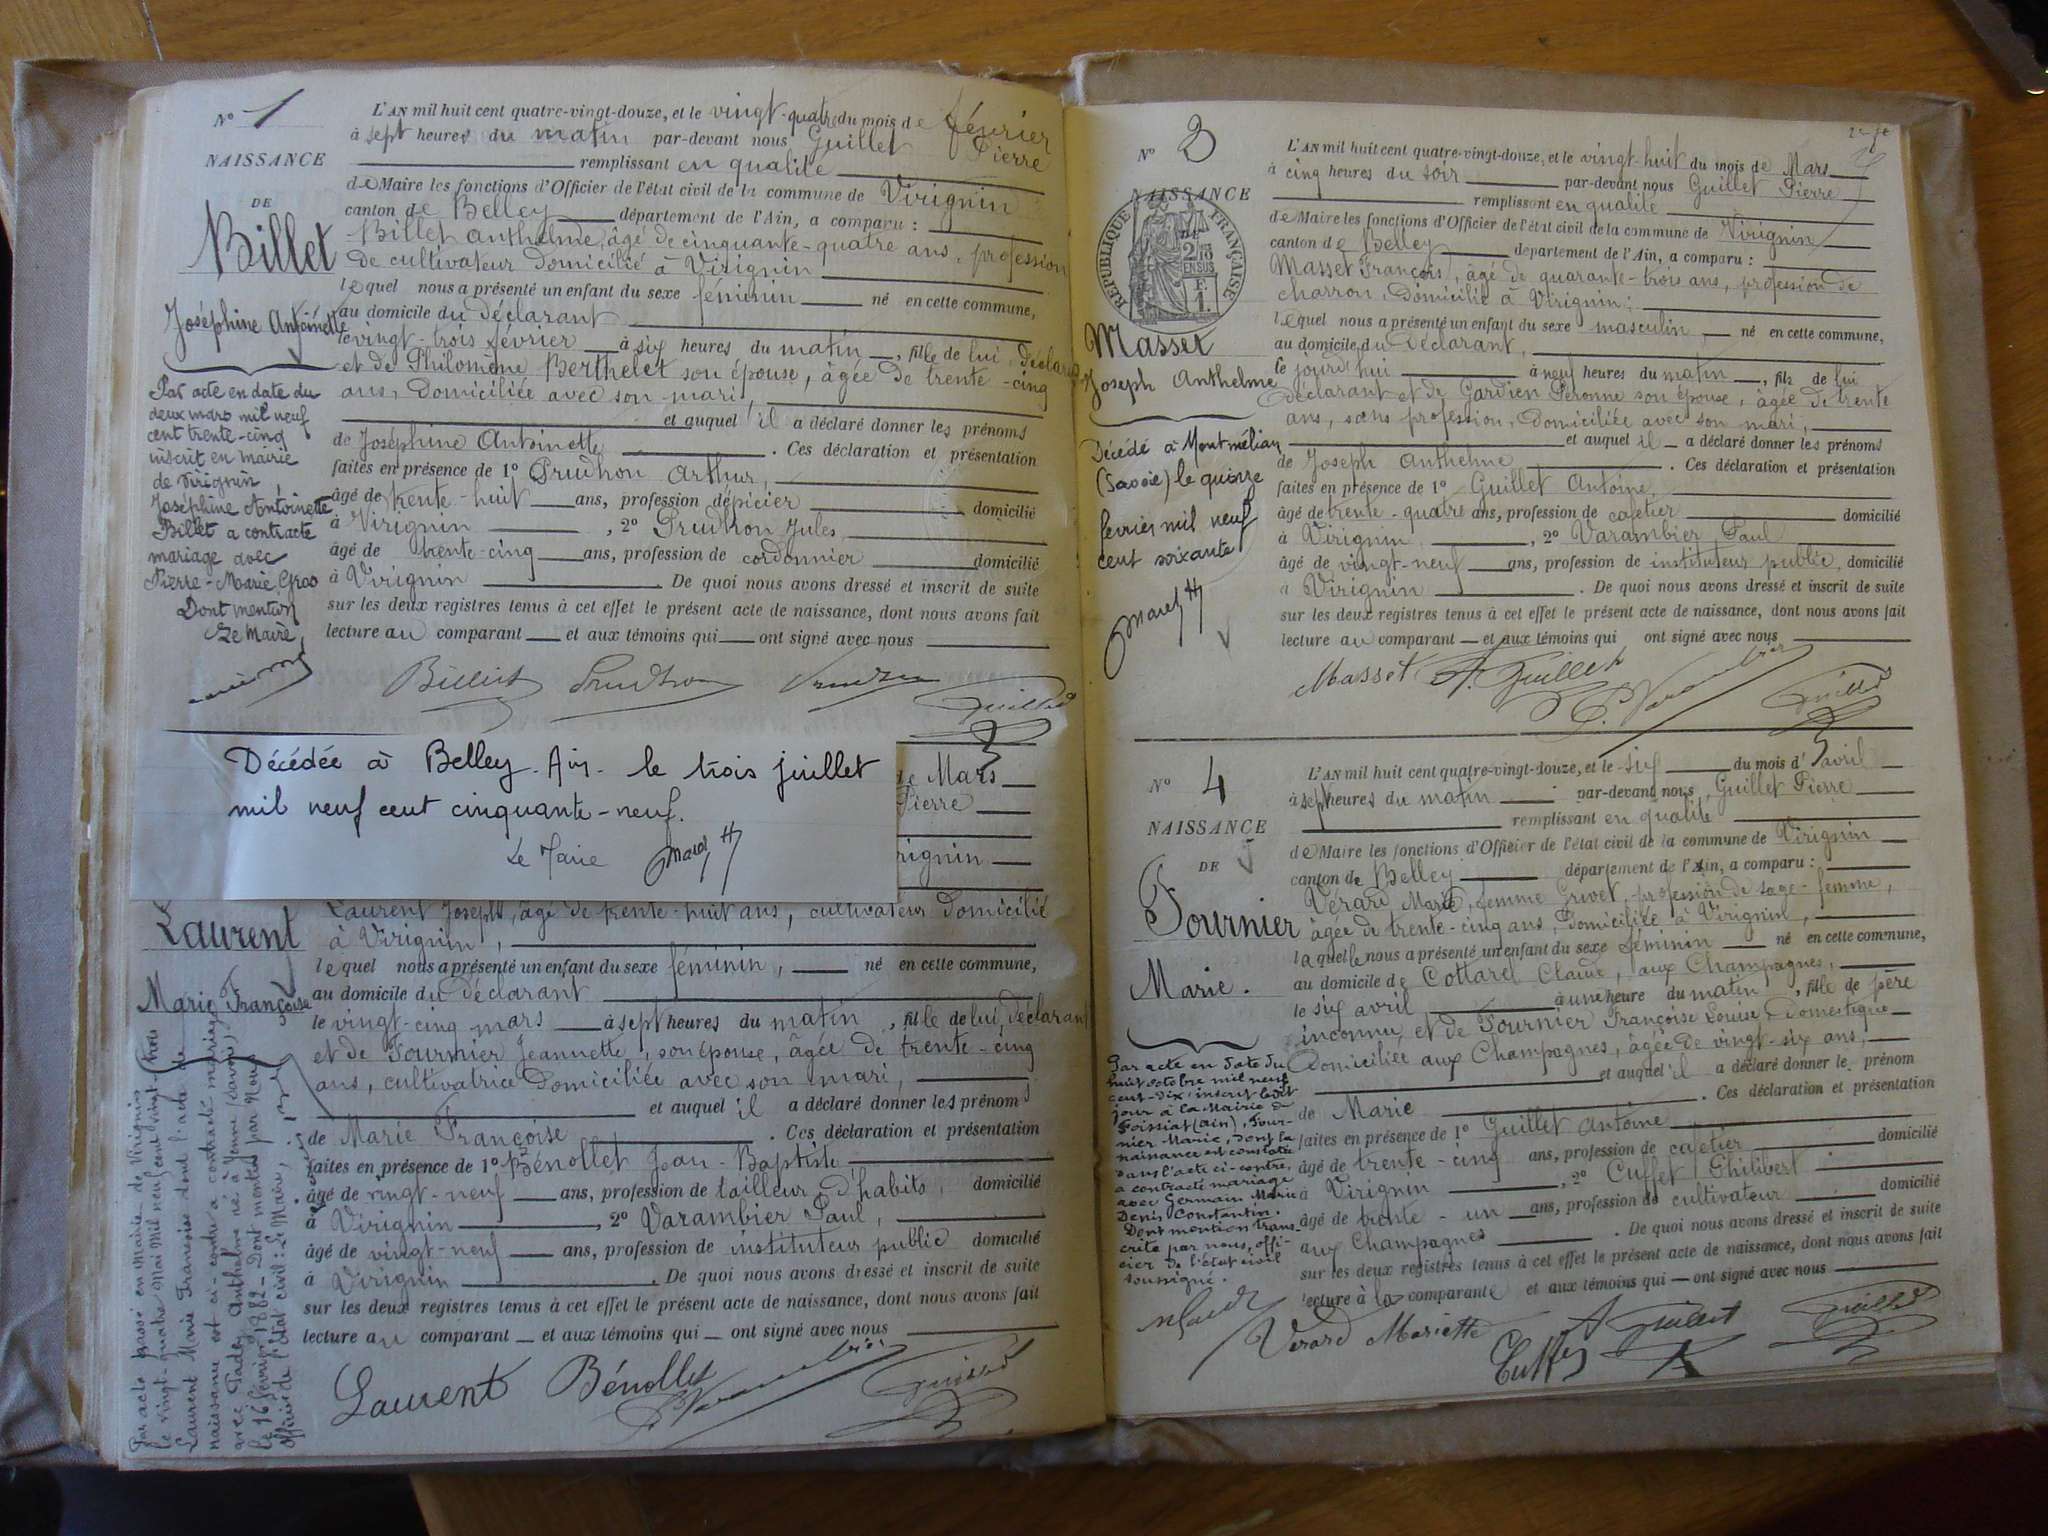 N° 1
NAISSANCE
DE
Billet
Joséphine Antoinette
Par acte en date du
deux mars mil neuf
cent trente-cinq
inscrit en mairie
de Virignin,
Joséphine Antoinette
Billet a contracté
mariage avec
Pierre-Marie Gros
Dont mention
Le Maire,
L'AN mil huit cent quatre-vingt-douze, et le vingt-quatre du mois de février
à sept heures du matin par-devant nous Guillet Pierre
remplissant en qualité
de Maire les fonctions d'Officier de l'état civil de la commune de Virignin
canton de Belley département de l'Ain, a comparu :
Billet Anthelme, âgé de cinquante-quatre ans, profession
de cultivateur domicilié à Virignin
lequel nous a présenté un enfant du sexe féminin né en cette commune,
au domicile du déclarant
le vingt-trois février à six heures du matin, fille de lui déclarant
et de Philomène Berthelet son épouse, âgée de trente-cinq
ans, domiciliée avec son mari,
et auquel il a déclaré donner les prénoms
de Joséphine Antoinette. Ces déclaration et présentation
faites en présence de 1° Prudhon Arthur,
âgé de trente-huit ans, profession d'épicier domicilié
à Virignin, 2° Prudhon Jules,
âgé de trente-cinq ans, profession de cordonnier domicilié
à Virignin. De quoi nous avons dressé et inscrit de suite
sur les deux registres tenus à cet effet le présent acte de naissance, dont nous avons fait
lecture au comparant et aux témoins qui ont signé avec nous
Billet Prudhon Guillet
Décédée à Belley. Ain. le trois juillet
mil neuf cent cinquante-neuf.
Le Maire
de Mars
Pierre
Virignin
Laurent
Marie Françoise
Laurent Joseph, âgé de trente-huit ans, cultivateur domicilié
à Virignin,
lequel nous a présenté un enfant du sexe féminin, né en cette commune,
au domicile du déclarant
le vingt-cinq mars à sept heures du matin, fille de lui déclarant
et de Fournier Jeannette, son épouse, âgée de trente-cinq
ans, cultivatrice domiciliée avec son mari,
et auquel il a déclaré donner les prénoms
de Marie Françoise. Ces déclaration et présentation
faites en présence de 1° Bénollet Jean-Baptiste
âgé de vingt-neuf ans, profession de tailleur d'habits, domicilié
à Virignin, 2° Varambier Paul,
âgé de vingt-neuf ans, profession de instituteur public domicilié
à Virignin. De quoi nous avons dressé et inscrit de suite
sur les deux registres tenus à cet effet le présent acte de naissance, dont nous avons fait
lecture au comparant et aux témoins qui ont signé avec nous
Laurent Bénollet Guillet
Par acte passé en Mairie de Virignin
le vingt quatre Mai mil neuf cent vingt-trois
Laurent Marie Françoise dont l'acte de
naissance est ci-contre a contracté mariage
avec Anthelme né à Yenne (Savoie)
le 16 février 1882 - Dont mention par Nous
officier de l'état civil: Le Maire,
N° 3
NAISSANCE
RÉPUBLIQUE FRANÇAISE
2/10
EN SUS
F.
1.
Masset
Joseph Anthelme
Décédé à Montmélian
(Savoie) le quinze
février mil neuf
cent soixante
L'AN mil huit cent quatre-vingt-douze, et le vingt-huit du mois de Mars
à cinq heures du soir par-devant nous Guillet Pierre
remplissant en qualité
de Maire les fonctions d'Officier de l'état civil de la commune de Virignin
canton de Belley département de l'Ain, a comparu :
Masset François, âgé de quarante-trois ans, profession de
charron, domicilié à Virignin;
lequel nous a présenté un enfant du sexe masculin né en cette commune,
au domicile du déclarant,
le jourd'hui à neuf heures du matin, fils de lui
déclarant et de Gardien Peronne son épouse, âgée de trente
ans, sans profession, domiciliée avec son mari,
et auquel il a déclaré donner les prénoms
de Joseph Anthelme. Ces déclaration et présentation
faites en présence de 1° Guillet Antoine,
âgé de trente-quatre ans, profession de cafetier domicilié
à Virignin, 2° Varambier Paul
âgé de vingt-neuf ans, profession de instituteur public, domicilié
à Virignin. De quoi nous avons dressé et inscrit de suite
sur les deux registres tenus à cet effet le présent acte de naissance, dont nous avons fait
lecture au comparant et aux témoins qui ont signé avec nous
Masset A. Guillet Guillet
N° 4
NAISSANCE
DE
Fournier
Marie.
Par acte en date du
huit octobre mil neuf
cent-dix, inscrit ledit
jour à la Mairie de
Foissiat (Ain), Four-
nier Marie, dont la
naissance est constatée
dans l'acte ci-contre,
a contracté mariage
avec Germain Marie
Denis Constantin.
Dont mention trans-
crite par nous, offi-
cier de l'état civil
soussigné.
L'AN mil huit cent quatre-vingt-douze, et le six du mois d'avril
à sept heures du matin par-devant nous Guillet Pierre
remplissant en qualité
de Maire les fonctions d'Officier de l'état civil de la commune de Virignin
canton de Belley département de l'Ain, a comparu :
Vérard Marie, femme Grivet, profession de sage-femme,
âgée de trente-cinq ans, domiciliée à Virignin,
laquelle nous a présenté un enfant du sexe féminin né en cette commune,
au domicile de Cottarel Claude, aux Champagnes,
le six avril à une heure du matin, fille de père
inconnu et de Fournier Françoise Louise, domestique
domiciliée aux Champagnes, âgée de vingt-six ans,
et auquel il a déclaré donner le prénom
de Marie. Ces déclaration et présentation
faites en présence de 1° Guillet Antoine
âgé de trente-cinq ans, profession de cafetier domicilié
à Virignin, 2° Cuffet Philibert
âgé de trente-un ans, profession de cultivateur domicilié
aux Champagnes. De quoi nous avons dressé et inscrit de suite
sur les deux registres tenus à cet effet le présent acte de naissance, dont nous avons fait
lecture à la comparante et aux témoins qui ont signé avec nous
Vérard Mariette A Guillet Guillet
Cuffet